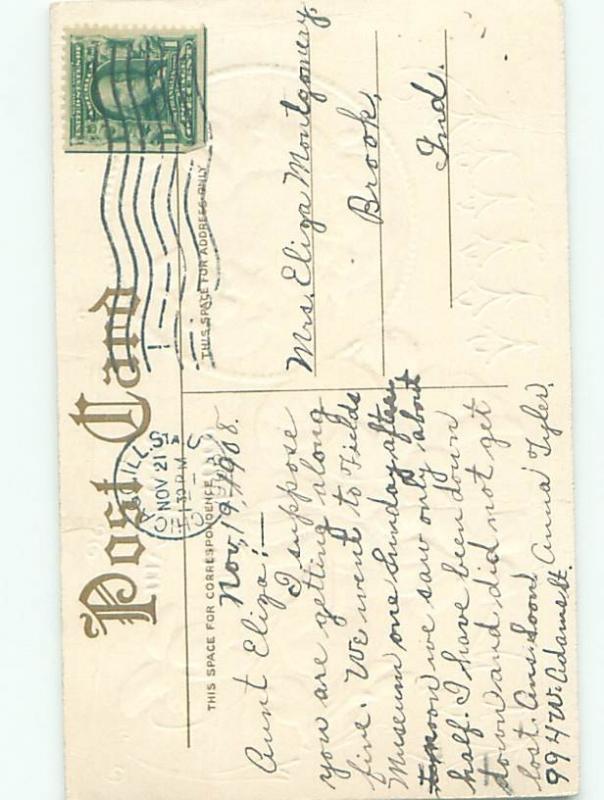 Post Card
THIS SPACE FOR CORRESPONDENCE
THIS SPACE FOR ADDRESS ONLY
NOV 21
1 30 PM
ILL.
Nov, 19, 1908.
Aunt Eliza:—
I suppose
you are getting along
fine. We went to Fields
Museum one Sunday after
noon we saw only about
half. I have been down
town and did not get
lost. Ans. Soon
994 W. Adams St. Anna Tyler.
Mrs. Eliza Montgomery.
Brook,
Ind.